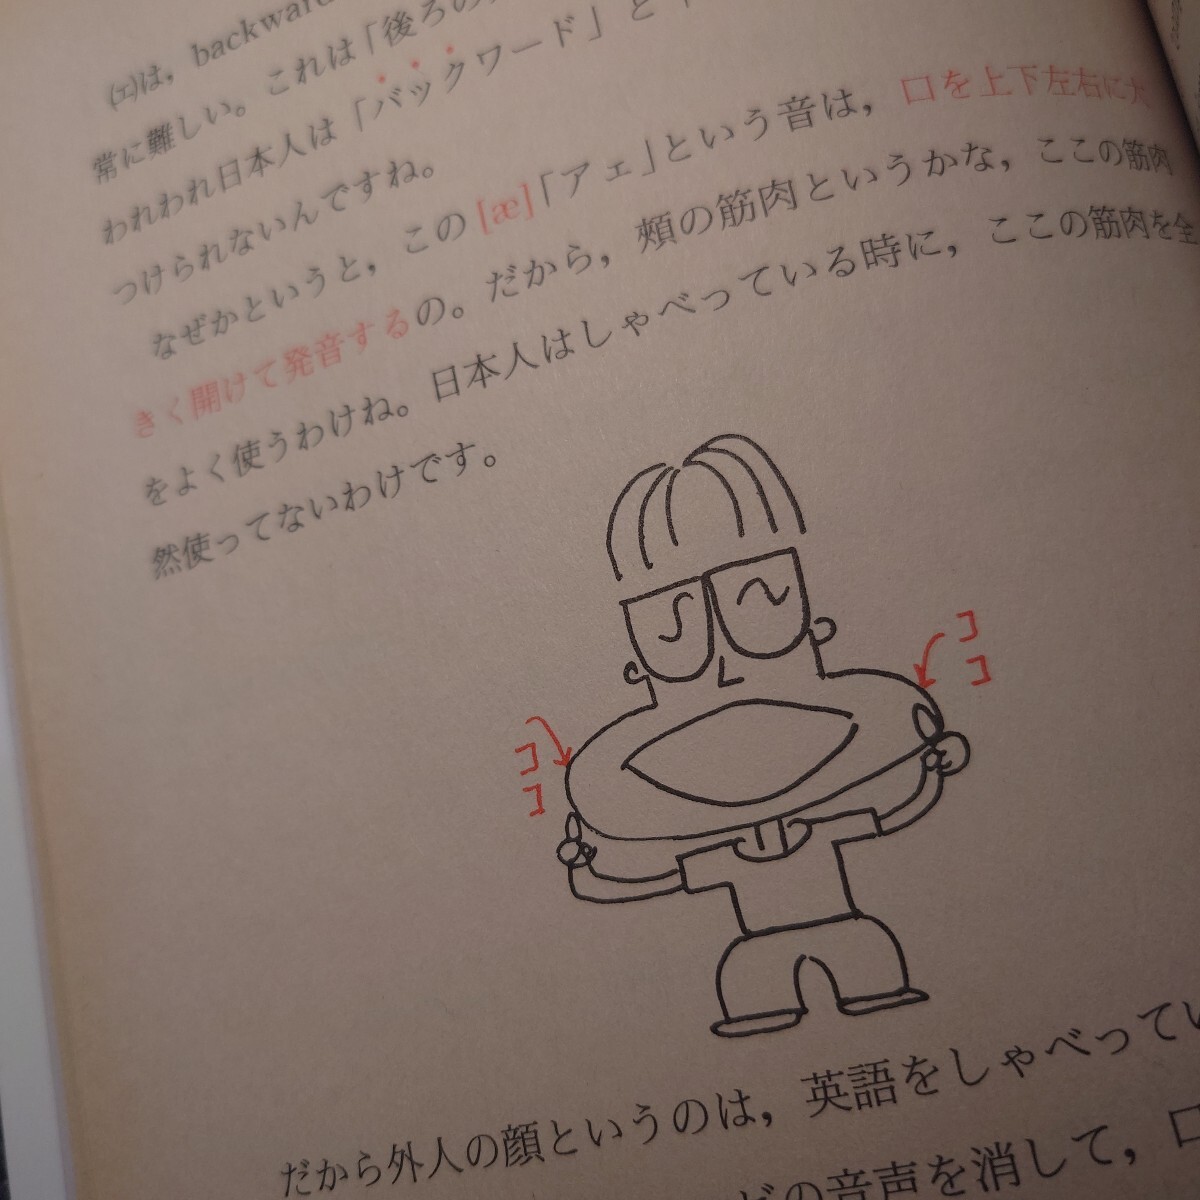 (エ)は，backward
常に難しい。これは「後ろの
われわれ日本人は「バックワード」と
つけられないんですね。
なぜかというと，この[æ]「アェ」という音は，口を上下左右に大
きく開けて発音するの。だから，頰の筋肉というかな，ここの筋肉
をよく使うわけね。日本人はしゃべっている時に，ここの筋肉を全
然使ってないわけです。
ココ
ココ
だから外人の顔というのは，英語をしゃべってい
どの音声を消して，口